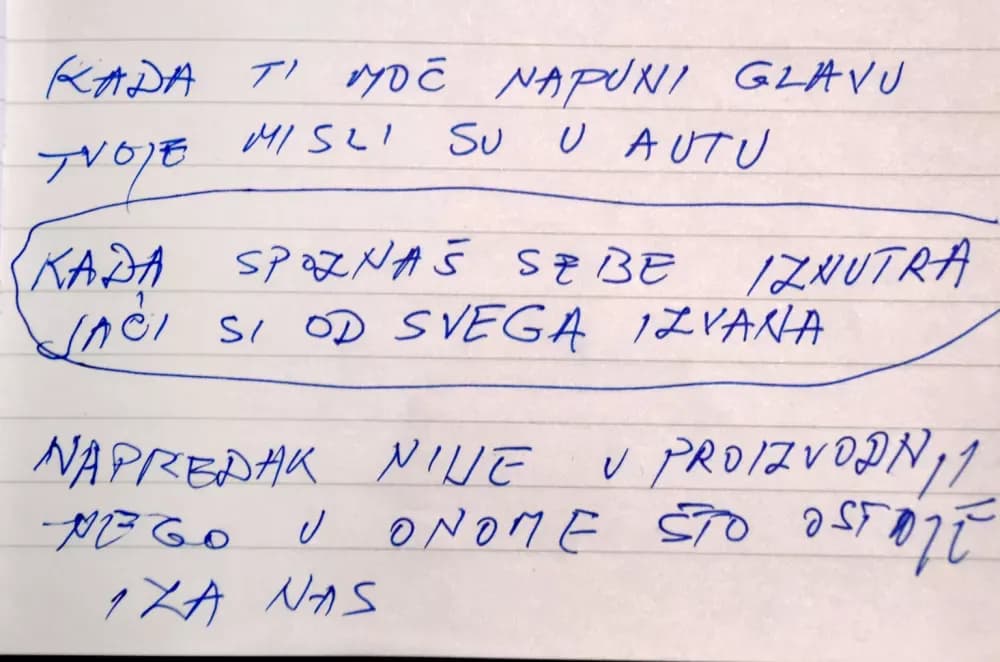 KADA TI MOČ NAPUNI GLAVU
TVOJE MISLI SU U AUTU
KADA SPOZNAŠ SEBE IZNUTRA
JAČI SI OD SVEGA IZVANA
NAPREDAK NIJE U PROIZVODNJI
NEGO U ONOME ŠTO OSTAJE
IZA NAS